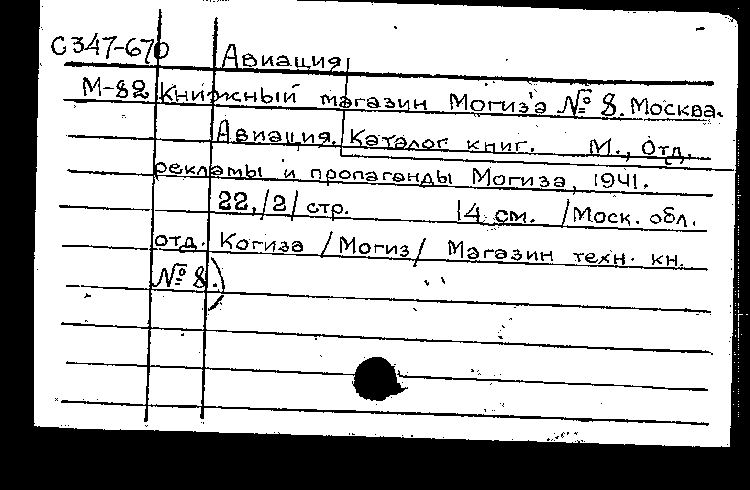 С347-670
Авиация
М-82 Книжный магазин Могиз'а № 8. Москва.
Авиация. Каталог книг. М., Отд.
рекламы и пропаганды Могиза, 1941.
22,/2/ стр. 14 см. /Моск. обл.
отд. Когиза /Могиз/ Магазин техн. кн.
№ 8.)